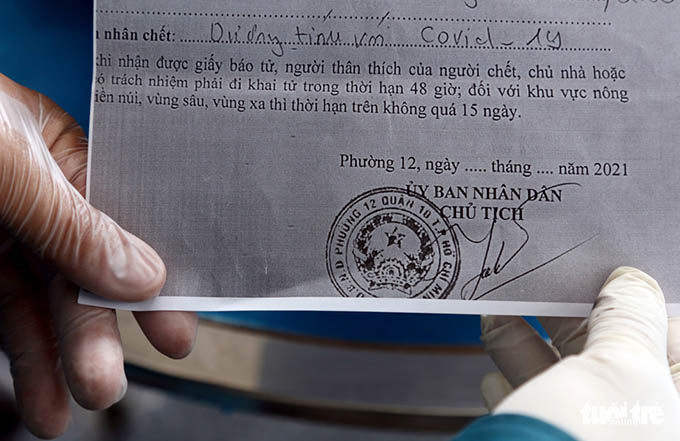 nhân chết: Dương tính với Covid-19
khi nhận được giấy báo tử, người thân thích của người chết, chủ nhà hoặc
ó trách nhiệm phải đi khai tử trong thời hạn 48 giờ; đối với khu vực nông
iền núi, vùng sâu, vùng xa thì thời hạn trên không quá 15 ngày.
Phường 12, ngày ..... tháng .... năm 2021
ỦY BAN NHÂN DÂN
CHỦ TỊCH
U.B.N.D PHƯỜNG 12 QUẬN 10 T.P HỒ CHÍ MINH
tuổi trẻ
online